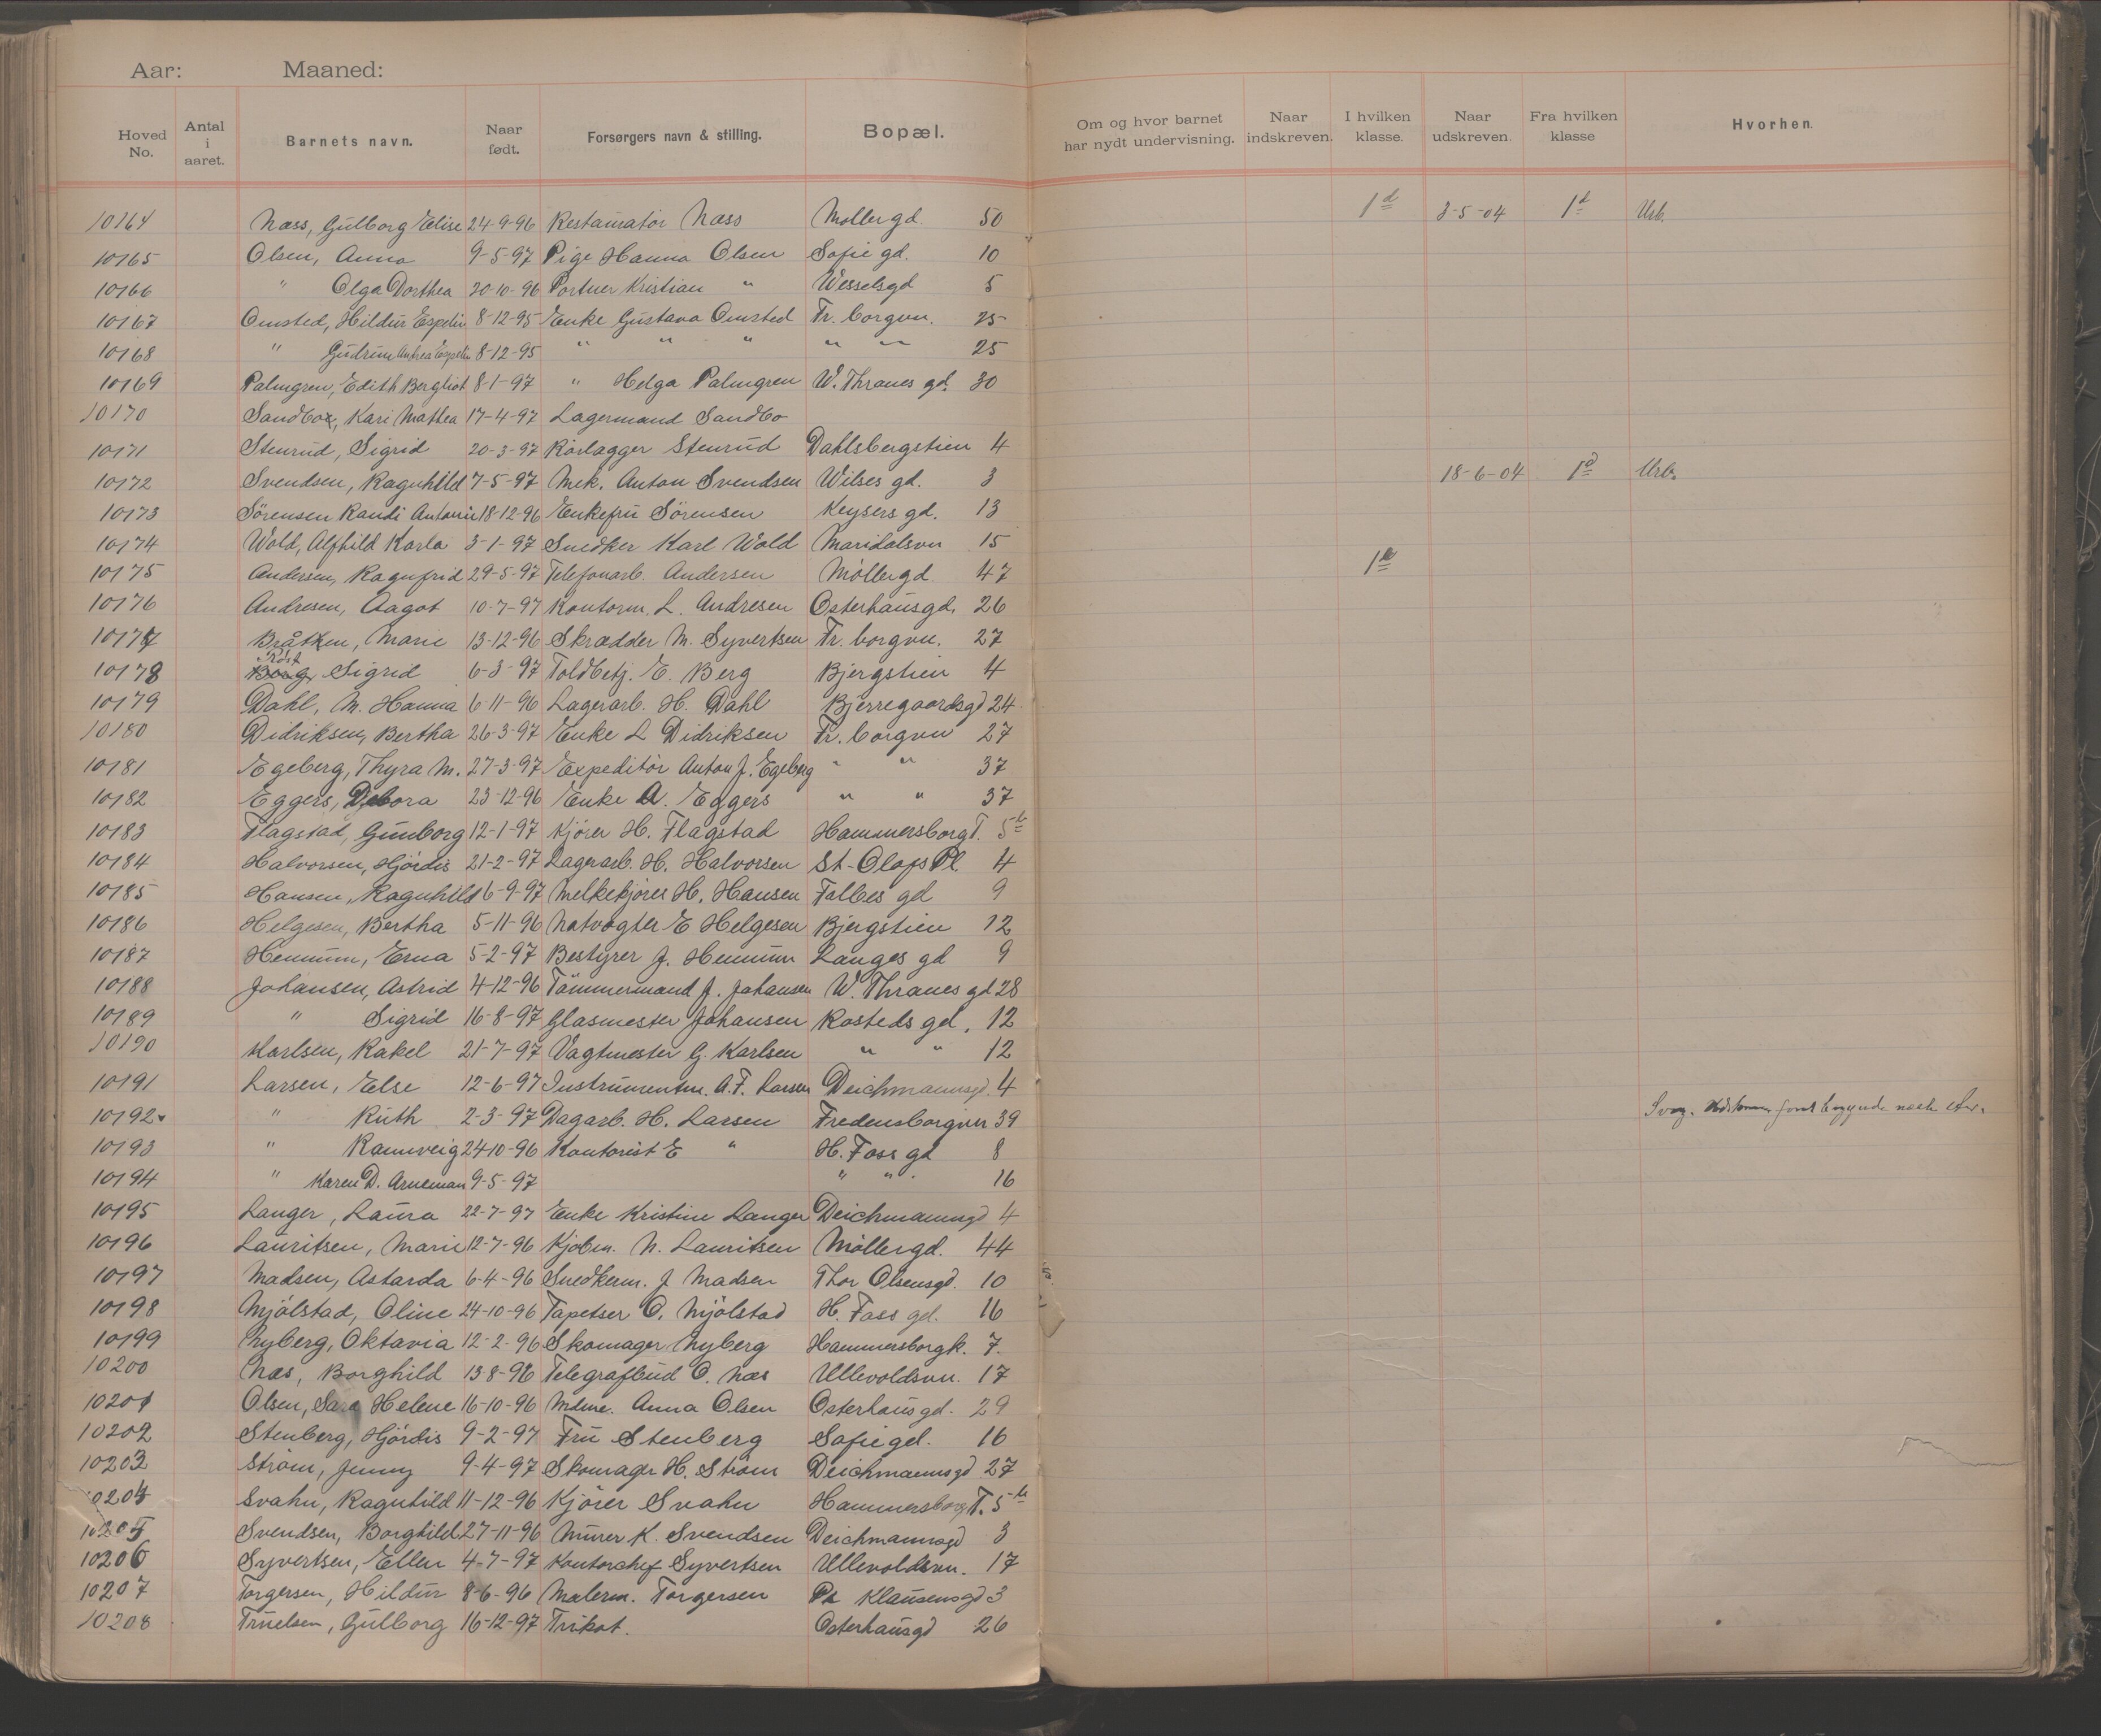 Aar: Maaned:
Hoved No. Antal i aaret. Barnets navn. Naar født. Forsørgers navn & stilling. Bopæl. Om og hvor barnet har nydt undervisning. Naar indskreven. I hvilken klasse. Naar udskreven. Fra hvilken klasse Hvorhen.
10164 Næss, Gulborg Elise 24-9-96 Restauratør Næss Møllergd. 50 1d 3-5-04 1d Urb.
10165 Olsen, Anna 9-5-97 Pige Hanna Olsen Sofie gd. 10
10166 " Olga Dorthea 20-10-96 Portner Kristian " Wesselsgd 5
10167 Omsted, Hildur Espelin 8-12-95 Enke Gustava Omsted Fr. borgvn. 25
10168 " Gudrun Anhea Espelin 8-12-95 " " " " " 25
10169 Palmgren, Edith Bergliot 8-1-97 " Helga Palmgren W. Thranes gd. 30
10170 Sandbo, Kari Mathea 17-4-97 Lagermand Sandbo
10171 Stenrud, Sigrid 20-3-97 Rørlægger Stenrud Dahlsbergstien 4
10172 Svendsen, Ragnhild 7-5-97 Mek. Anton Svendsen Wilses gd. 3 18-6-04 1d Urb.
10173 Sörensen Randi Antonie 18-12-96 Enkefru Sörensen Keysers gd. 13
10174 Wold, Alfhild Karla 3-1-97 Snedker Karl Wold Maridalsvn 15
10175 Andersen, Ragnfrid 29-5-97 Telefonarb. Andersen Möllergd. 47
10176 Andresen, Aagot 10-7-97 Kontorm. L. Andresen Osterhausgd. 26
10177 Bråten, Marie 13-12-96 Skrædder M. Syvertsen Fr. borgvn. 27
10178 Berg, Sigrid 6-3-97 Toldbetj. E. Berg Bjergstien 4
10179 Dahl, M. Hanna 6 11-96 Lagerarb. H. Dahl Bjerregaardsgd 24
10180 Didriksen, Bertha 26-3-97 Enke L Didriksen Fr. borgvn 27
10181 Egeberg, Thyra M. 27-3-97 Expeditör Anton J. Egeberg " " 37
10182 Eggers, Debora 23-12-96 Enke A. Eggers " " 37
10183 Flagstad, Gunborg 12-1-97 Kjører H. Flagstad Hammersborg T. 5b
10184 Halvorsen, Hjördis 21-2-97 Lagerarb. H. Halvorsen St-Olafs Pl. 4
10185 Hansen, Ragnhild 6-9-97 Melkekjører H. Hansen Falbes gd 9
10186 Helgesen, Bertha 5-11-96 Natvagter E Helgesen Bjergstien 12
10187 Hennum, Erna 5-2-97 Bestyrer J. Hennum Langes gd 9
10188 Johansen, Astrid 4-12-96 Tömmermand J. Johansen W. Thranes gd 28
10189 " Sigrid 16-8-97 Glasmester Johansen Rosteds gd. 12
10190 Karlsen, Rakel 21-7-97 Vagtmester G. Karlsen " " 12
10191 Larsen, Else 12-6-97 Instrumentm. A.F. Larsen Deichmannsgd. 4
10192 " Ruth 2-3-97 Dagarb. H. Larsen Fredensborgvn 39 Svag. først begynde næste Aar.
10193 " Rannveig 24 10-96 Kontorist E " H. Foss gd 8
10194 " Karen D. Arneman 9-5-97 " " 16
10195 Langer, Laura 22-7-97 Enke Kristine Langer Deichmannsgd 4
10196 Lauritsen, Marie 12-7-96 Kjøbm. N. Lauritsen Möllergd. 44
10197 Madsen, Astarda 6-4-96 Snedkerm. J Madsen Thor Olsensgd. 10
10198 Mjölstad, Oline 24-10-96 Tapetser O. Mjölstad H. Foss gd. 16
10199 Nyberg, Oktavia 12-2-96 Skomager Nyberg Hammersborgk. 7.
10200 Næs, Borghild 13-8-96 Telegrafbud O. Næs Ullevoldsvn. 17
10201 Olsen, Sara Helene 16-10-96 Mdme. Anna Olsen Osterhausgd. 29
10202 Stenberg, Hjördis 9-2-97 Fru Stenberg Sofiegd. 16
10203 Strøm, Jenny 9-4-97 Skomager H. Strøm Deichmannsgd 27
10204 Svahn, Ragnhild 11-12-96 Kjører Svahn Hammersborg T. 5b
10205 Svendsen, Borghild 27-11-96 Murer K. Svendsen Deichmannsgd 3
10206 Syvertsen, Ellen 4-7-97 Kontorchef Syvertsen Ullevoldsvn. 17
10207 Torgersen, Hildur 8-6-96 Malerm. Torgersen Klausensgd 3
10208 Truelsen, Gulborg 16-12-97 Trikot. Osterhausgd 26